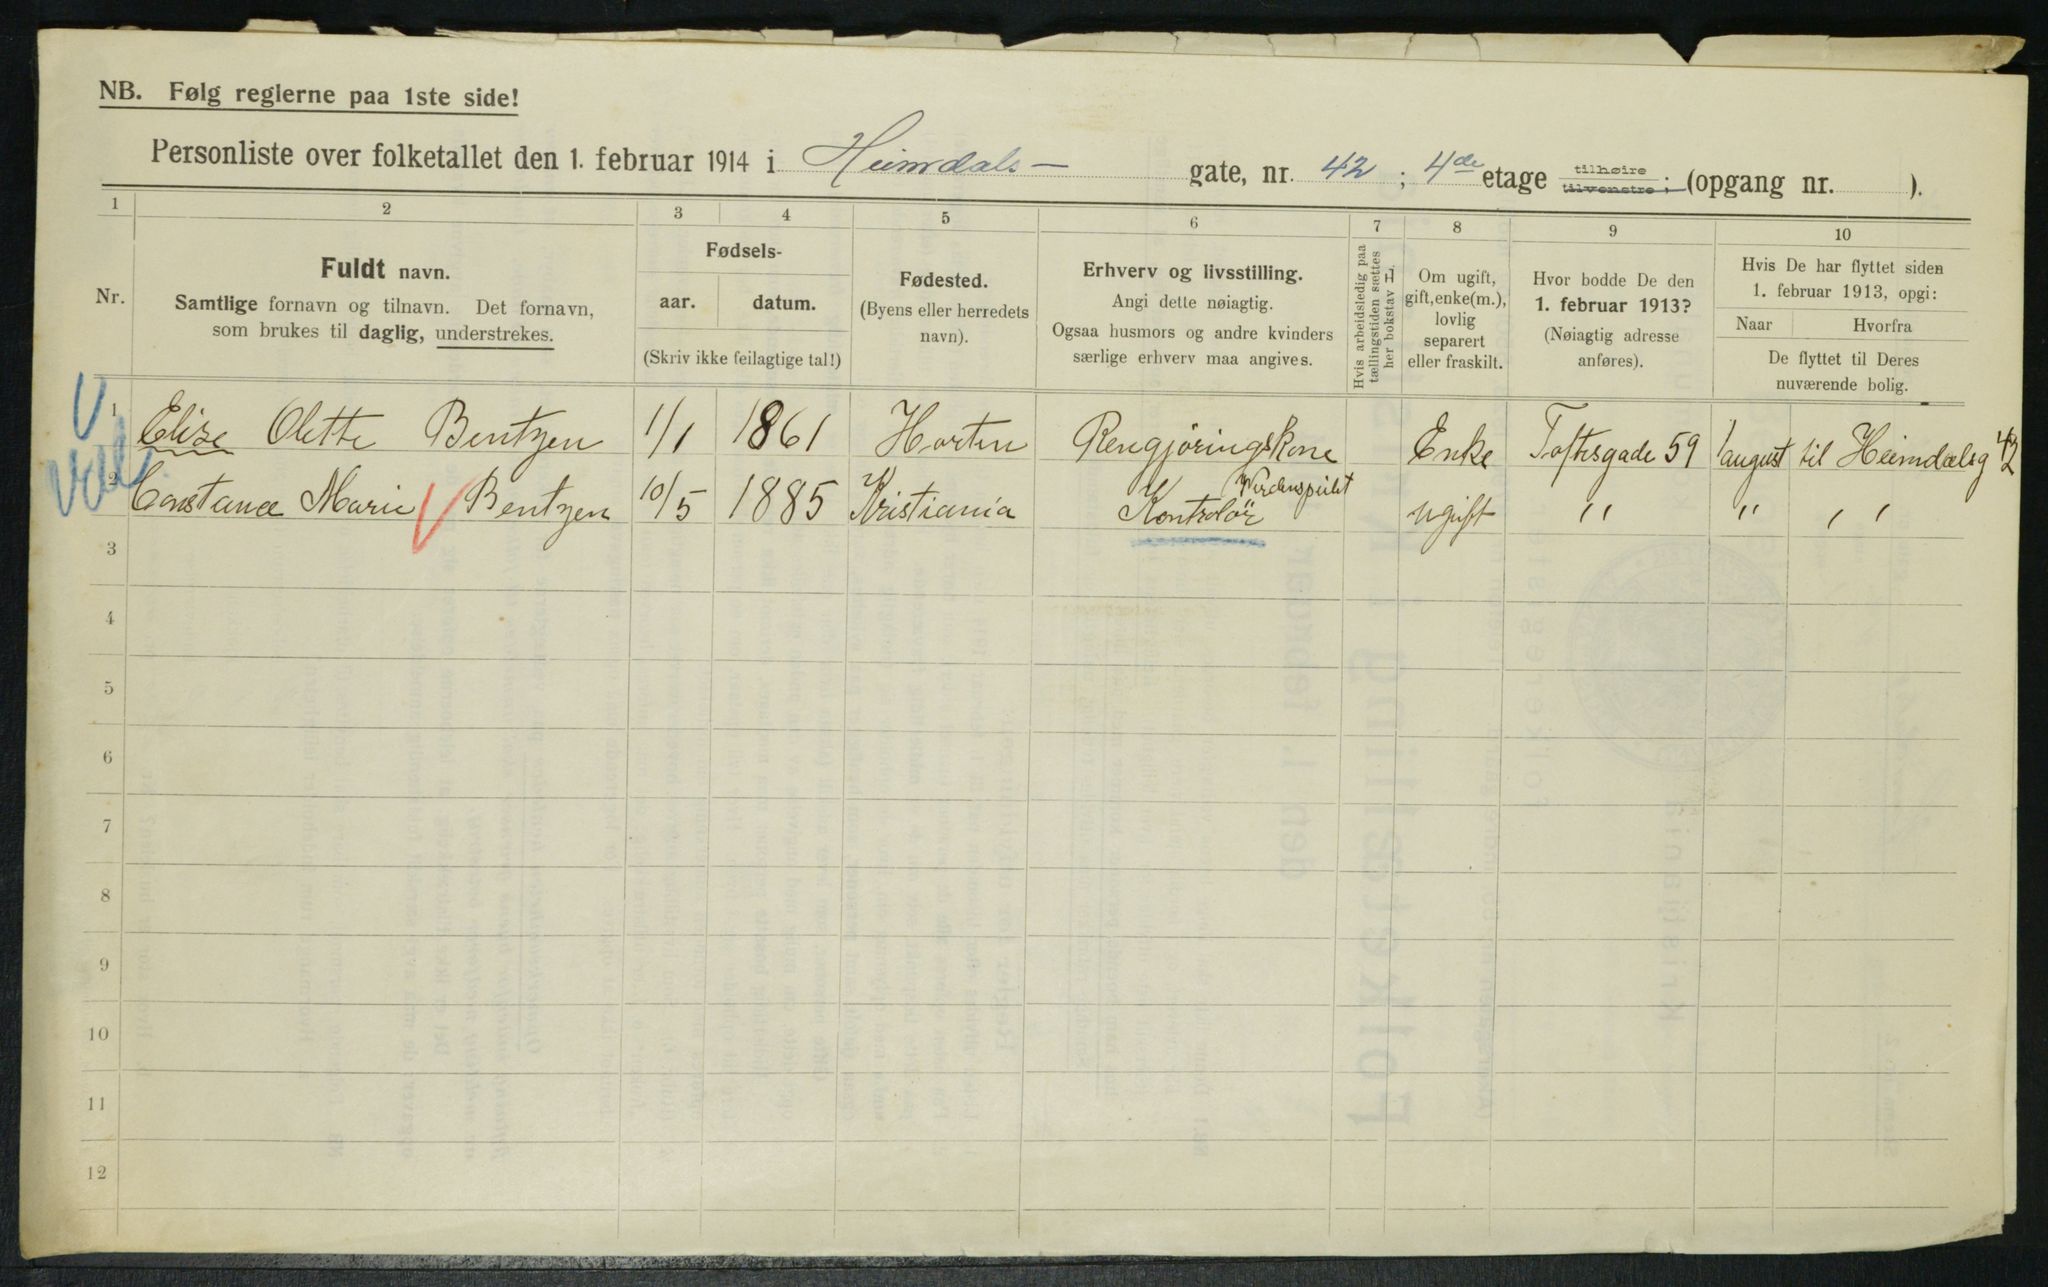 NB. Følg reglerne paa 1ste side!
Personliste over folketallet den 1. februar 1914 i Heimdals- gate, nr. 42 ; 4de etage tilhøire tilvenstre ; (opgang nr. ).
1 2 3 4 5 6 7 8 9 10
Nr.
Fuldt navn.
Samtlige fornavn og tilnavn. Det fornavn,
som brukes til daglig, understrekes.
Fødsels-
aar. datum.
(Skriv ikke feilagtige tal!)
Fødested.
(Byens eller herredets
navn).
Erhverv og livsstilling.
Angi dette nøiagtig.
Ogsaa husmors og andre kvinders
særlige erhverv maa angives.
Hvis arbeidsledig paa
tællingstiden sættes
her bokstav L.
Om ugift,
gift, enke(m.),
lovlig
separert
eller fraskilt.
Hvor bodde De den
1. februar 1913?
(Nøiagtig adresse
anføres).
Hvis De har flyttet siden
1. februar 1913, opgi:
Naar Hvorfra
De flyttet til Deres
nuværende bolig.
1 Elise Olette Bentzen 1/1 1861 Horten Rengjøringskone Enke Toftesgade 59 1 august til Heimdalsg 42
2 Constance Marie Bentzen 10/5 1885 Kristiania Kontrolör ugift " " " "
3
4
5
6
7
8
9
10
11
12